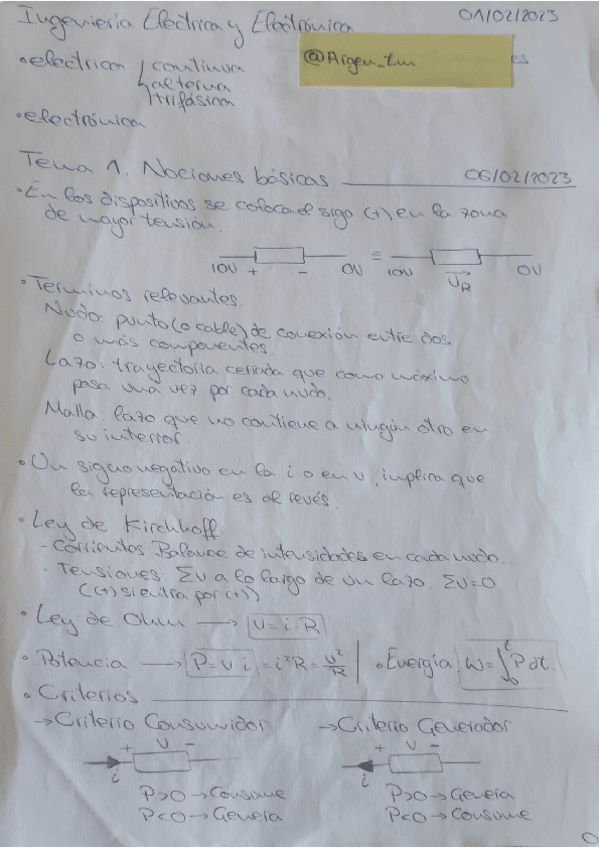 Ingeniería Eléctrica y Electrónica 01/02/2023
@Argen_tm es
• eléctrica continua
alterna
trifásica
• electrónica
Tema 1. Nociones básicas 06/02/2023
• En los dispositivos se coloca el sigo (+) en la zona
de mayor tensión.
10V + - 0V ≡ 10V U_R 0V
• Terminos relevantes.
Nudo: punto (o cable) de conexión entre dos
o más componentes.
Lazo: trayectoria cerrada que como máximo
pasa una vez por cada nudo.
Malla: lazo que no contiene a ningún otro en
su interior.
• Un signo negativo en la i o en v, implica que
la representación es al revés.
• Ley de Kirchhoff
- Corrientes Balance de intensidades en cada nudo.
- Tensiones: Σv a lo largo de un lazo. Σv=0
((+) si entra por (+))
• Ley de Ohm → v=i·R
• Potencia → P=v·i = i²R = v²/R | • Energía W=∫₀ᵗ P dt.
• Criterios
→ Criterio Consumidor → Criterio Generador
+ v - + v -
i i
P>0 → Consume P>0 → Genera
P<0 → Genera P<0 → Consume